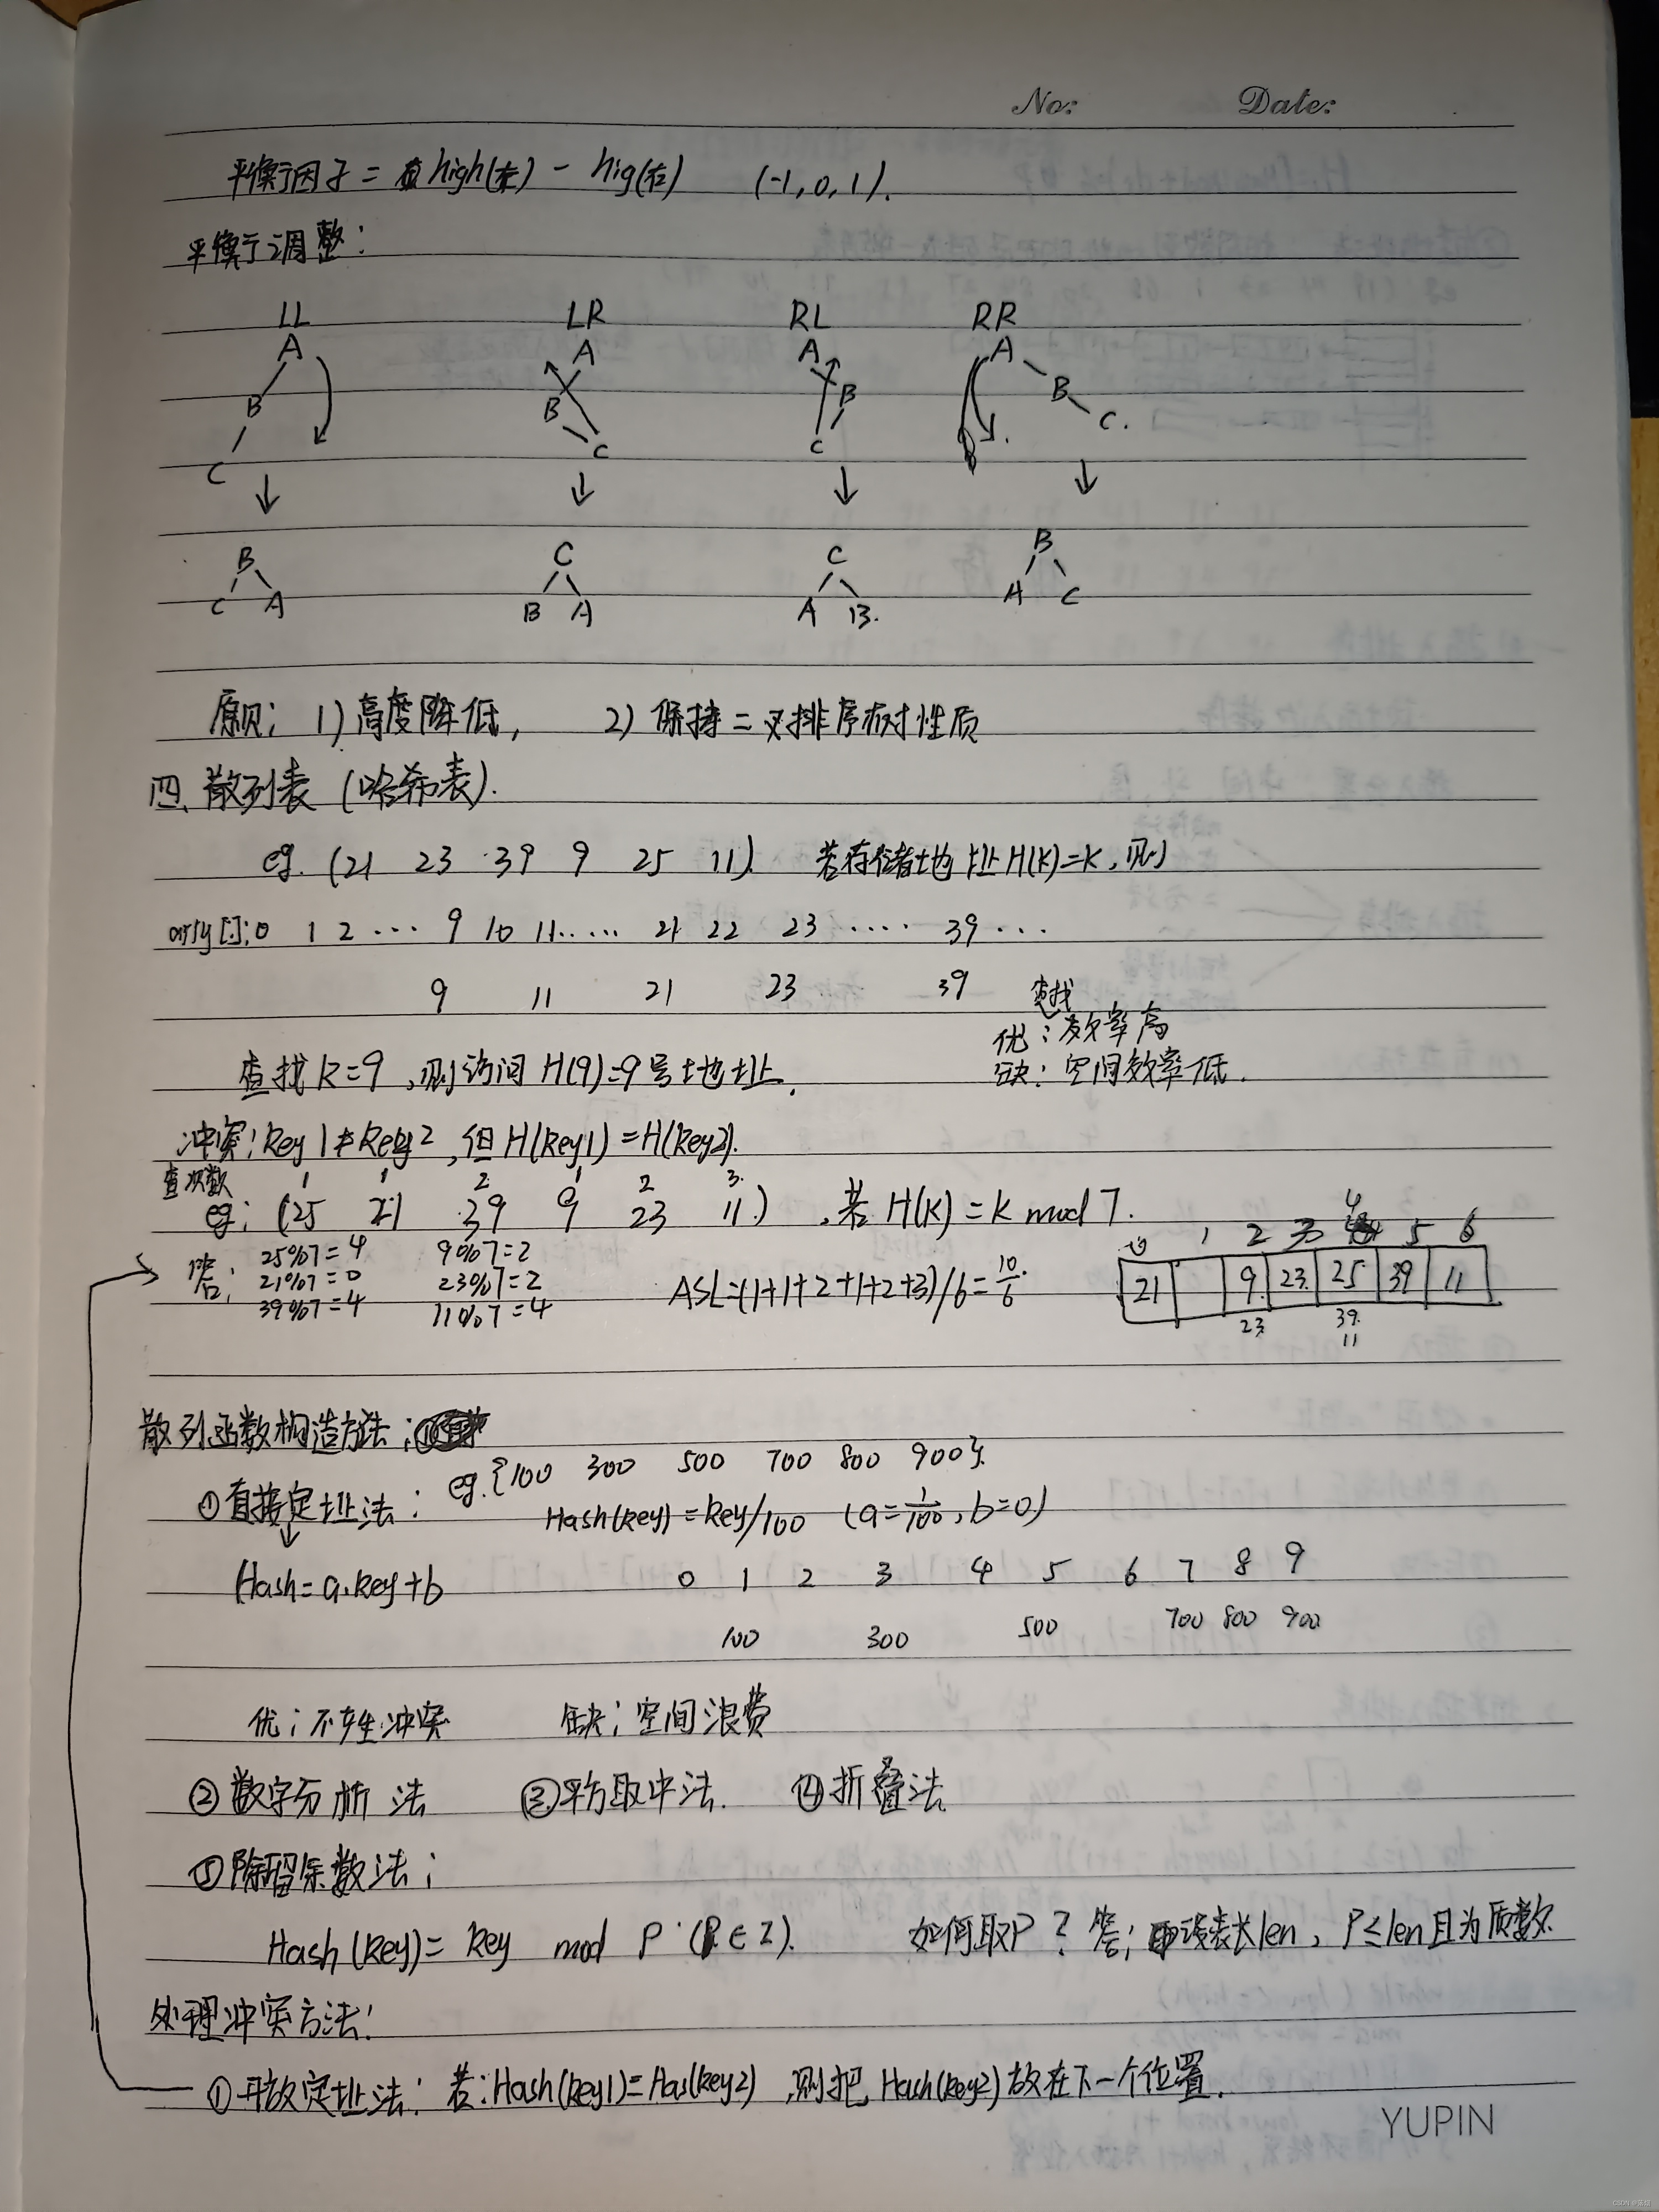 No: Date:
平衡因子 = high(左) - hig(右) (-1, 0, 1).
平衡调整:
LL LR RL RR
A A A A
B B B B
C C C C.
B C C B
C A B A A B. A C
原则: 1) 高度降低, 2) 保持二叉排序树性质
四、散列表 (哈希表).
eg. (21 23 39 9 25 11). 若存储地址H(k)=k, 则
arry[]: 0 1 2 ··· 9 10 11 ····· 21 22 23 ···· 39 ···
9 11 21 23 39
查找
优: 效率高
查找k=9, 则访问 H(9)=9号地址.
缺: 空间效率低.
冲突: key1≠key2, 但H(key1)=H(key2).
查次数 1 1 2 1 2 3
eg: (25 21 39 9 23 11), 若H(k)=k mod 7.
0 1 2 3 4 5 6
21 9 23 25 39 11
23 39 11
答: 25%7=4 9%7=2
21%7=0 23%7=2
39%7=4 11%7=4
ASL=(1+1+2+1+2+3)/6=10/6
散列函数构造方法:
①直接定址法: eg. {100 300 500 700 800 900}.
Hash(key)=key/100 (a=1/100, b=0)
Hash=a.key+b
0 1 2 3 4 5 6 7 8 9
100 300 500 700 800 900
优: 不产生冲突 缺: 空间浪费
②数字分析法 ③平方取中法. ④折叠法
⑤除留余数法:
Hash(key)= key mod P (P∈Z). 如何取P? 答: 设表长len, P≤len且为质数.
处理冲突方法:
①开放定址法: 若: Hash(key1)=Has(key2), 则把 Hash(key2)放在下一个位置.
YUPIN